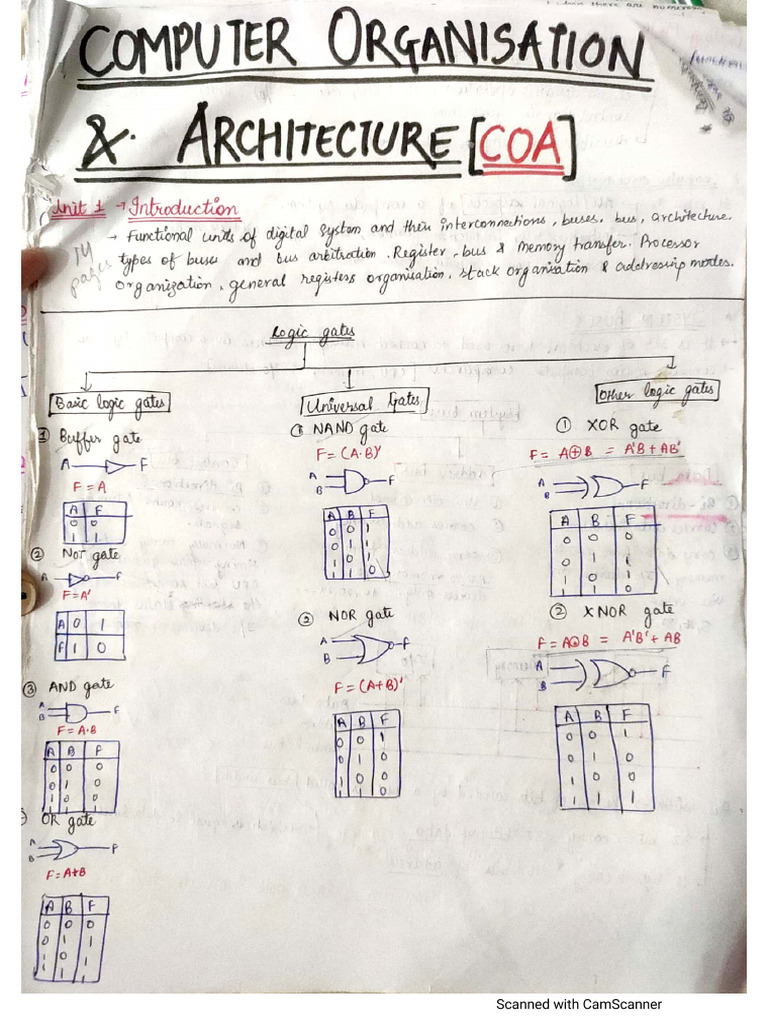 COMPUTER ORGANISATION
&. ARCHITECTURE [COA]
Unit 1 → Introduction
→ Functional units of digital system and their interconnections, buses, bus, architecture.
types of buses and bus arbitration. Register, bus & memory transfer. Processor
organization, general registers organisation, stack organisation & addressing modes.
14
pages
Logic gates
Basic logic gates
① Buffer gate
A F
F = A
A F
0 0
1 1
② NOT gate
A F
F=A'
A 0 1
F 1 0
③ AND gate
A
B F
F= A·B
A B F
0 0 0
0 1 0
1 0 0
1 1 1
OR gate
A
B F
F= A+B
A B F
0 0 0
0 1 1
1 0 1
1 1 1
Universal Gates
① NAND gate
F= (A·B)'
A
B F
A B F
0 0 1
0 1 1
1 0 1
1 1 0
② NOR gate
A
B F
F= (A+B)'
A B F
0 0 1
0 1 0
1 0 0
1 1 0
Other logic gates
① XOR gate
F= A⊕B = A'B + AB'
A
B F
A B F
0 0 0
0 1 1
1 0 1
1 1 0
② XNOR gate
F= A⊙B = A'B' + AB
A
B F
A B F
0 0 1
0 1 0
1 0 0
1 1 1
Scanned with CamScanner